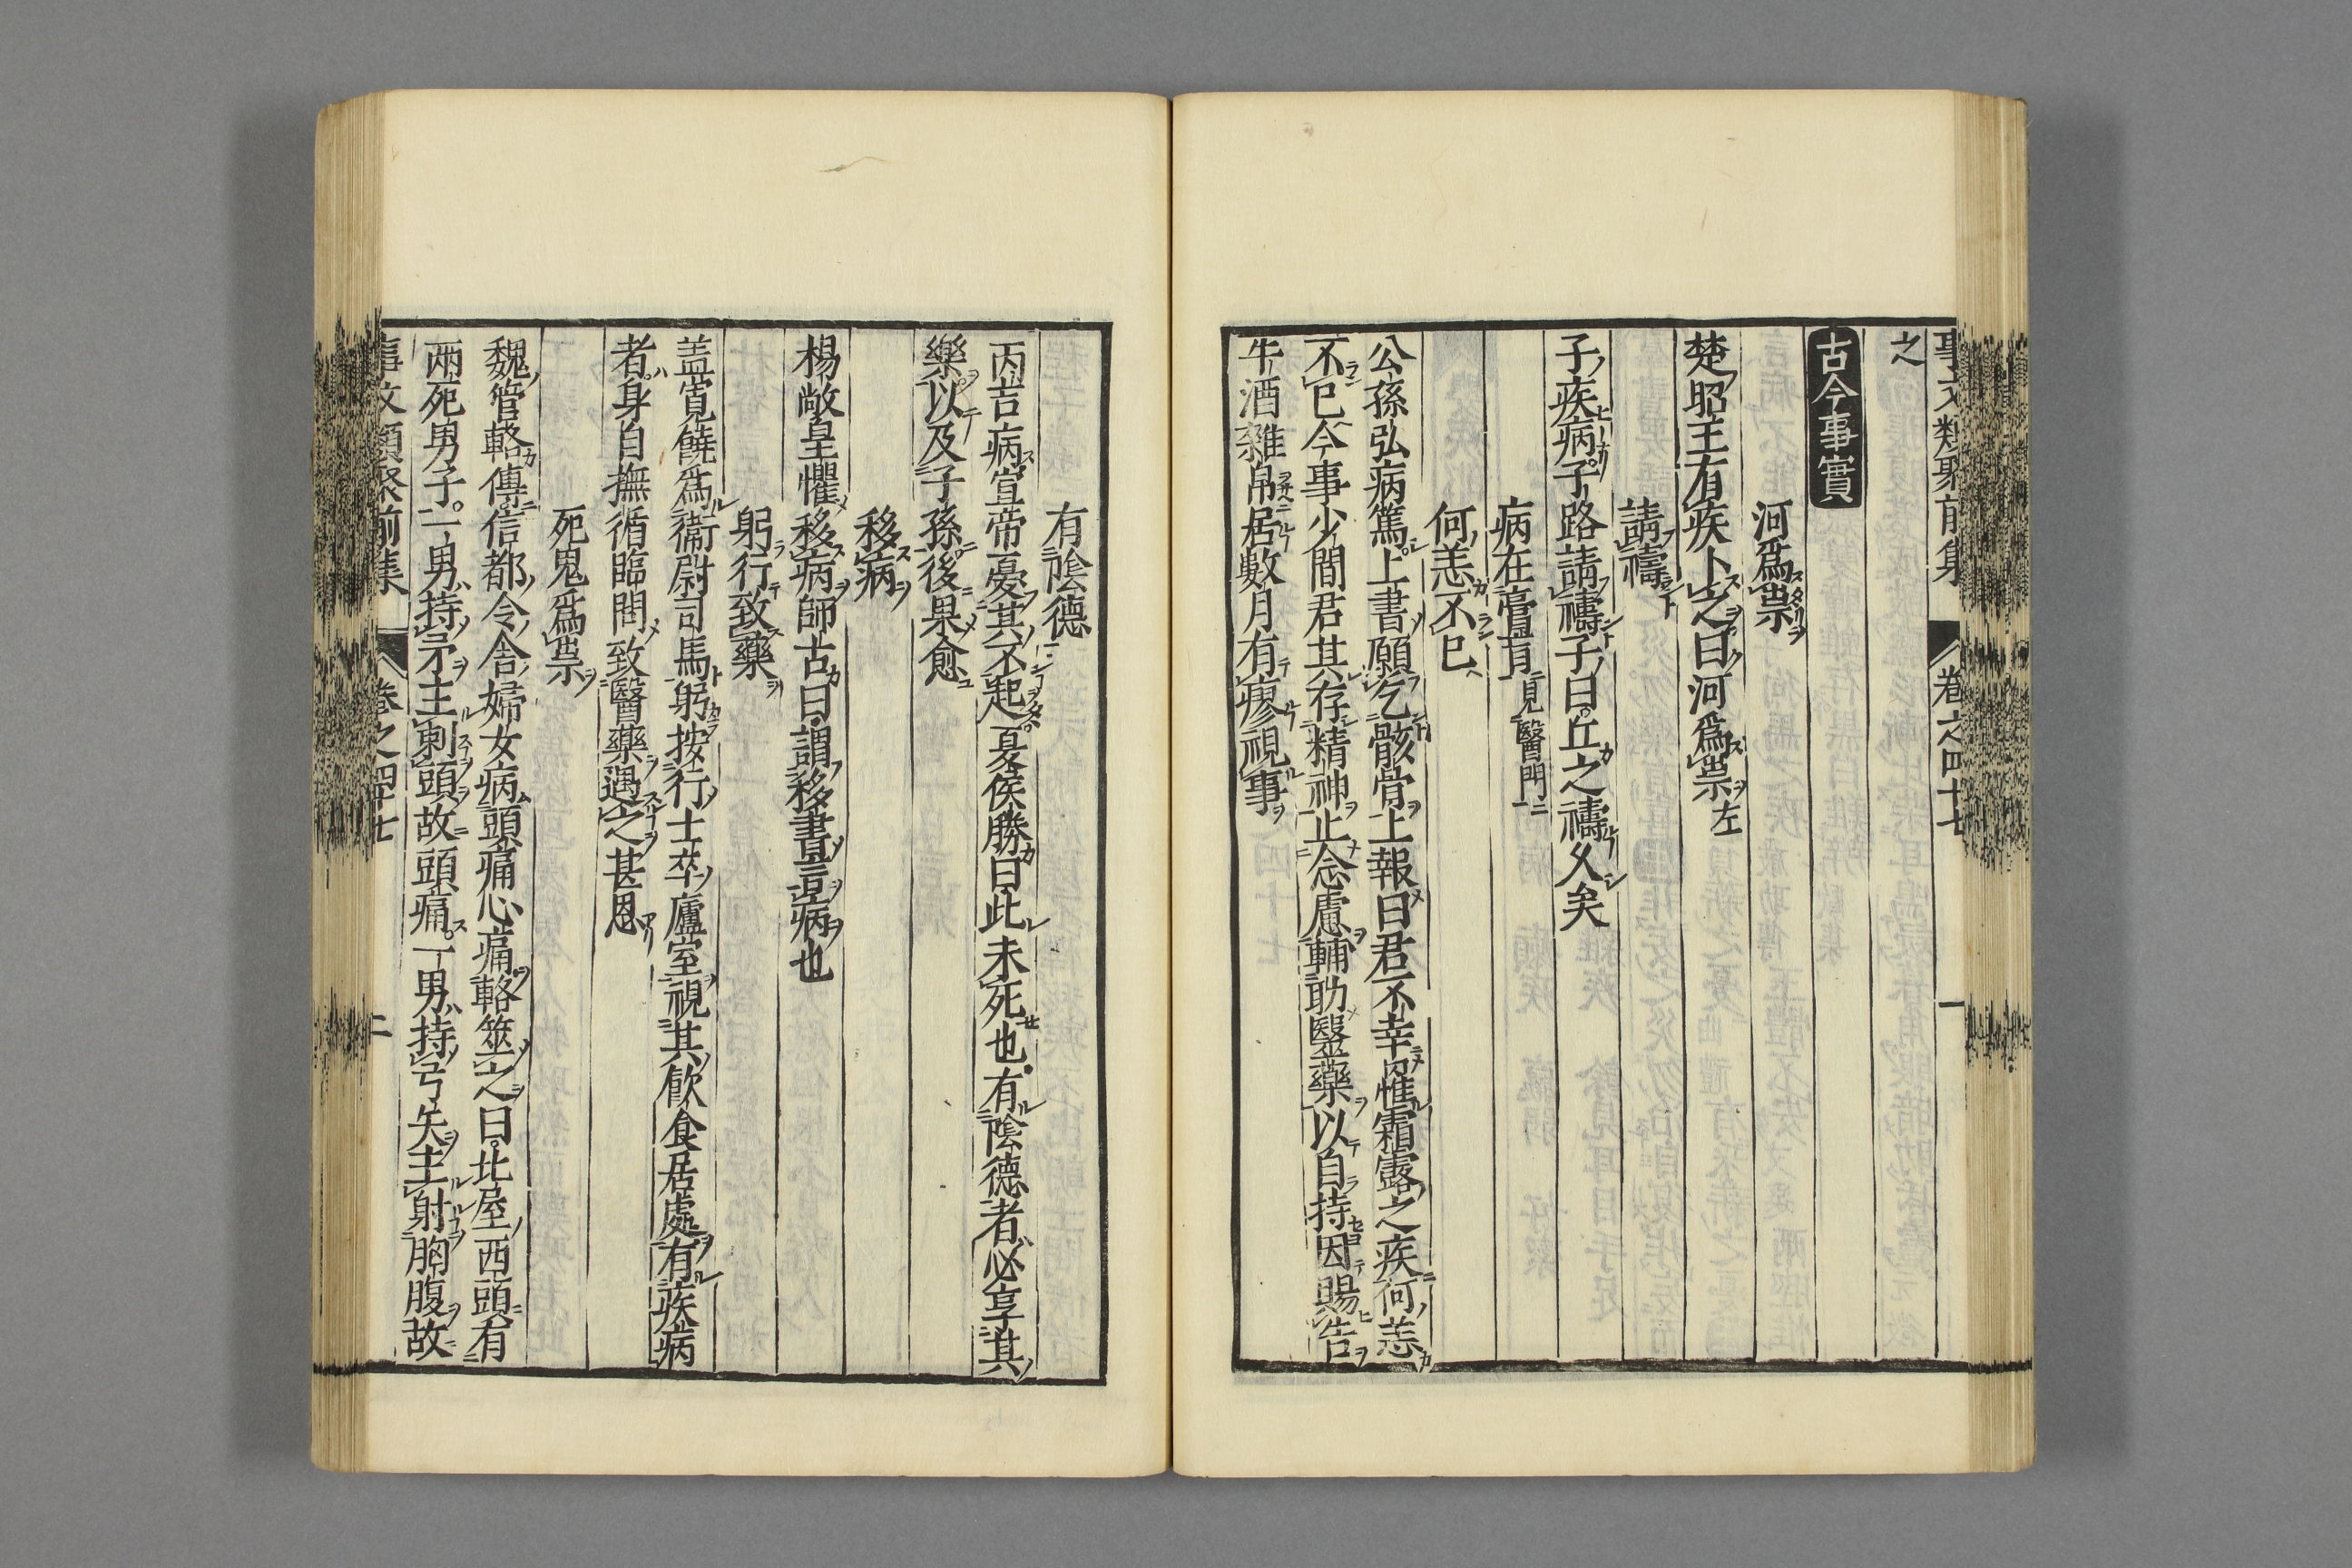 事文類聚前集 卷之四十七 一
之
古今事實
河爲祟
楚昭王有疾卜之曰河爲祟左
請禱
子疾病子路請禱子曰丘之禱久矣
病在膏肓見醫門二
何恙不已
公孫弘病篤上書願乞骸骨上報曰君不幸罹霜露之疾何恙
不已今事少間君其存精神止念慮輔助醫藥以自持因賜告
牛酒雜帛居數月有瘳視事
有陰德
丙吉病宣帝憂其不起夏侯勝曰此未死也有陰德者必享其
樂以及子孫後果愈
移病
楊敞皇懼移病師古曰謂移書言病也
躬行致藥
盖寬饒爲衞尉司馬躬按行士卒廬室視其飮食居處有疾病
者身自撫循臨問致醫藥遇之甚恩
死鬼爲祟
魏管輅傳信都令舍婦女病頭痛心痛輅筮之曰北屋西頭有
兩死男子一男持矛主刺頭故頭痛一男持弓矢主射胸腹故
事文類聚前集 卷之四十七 二